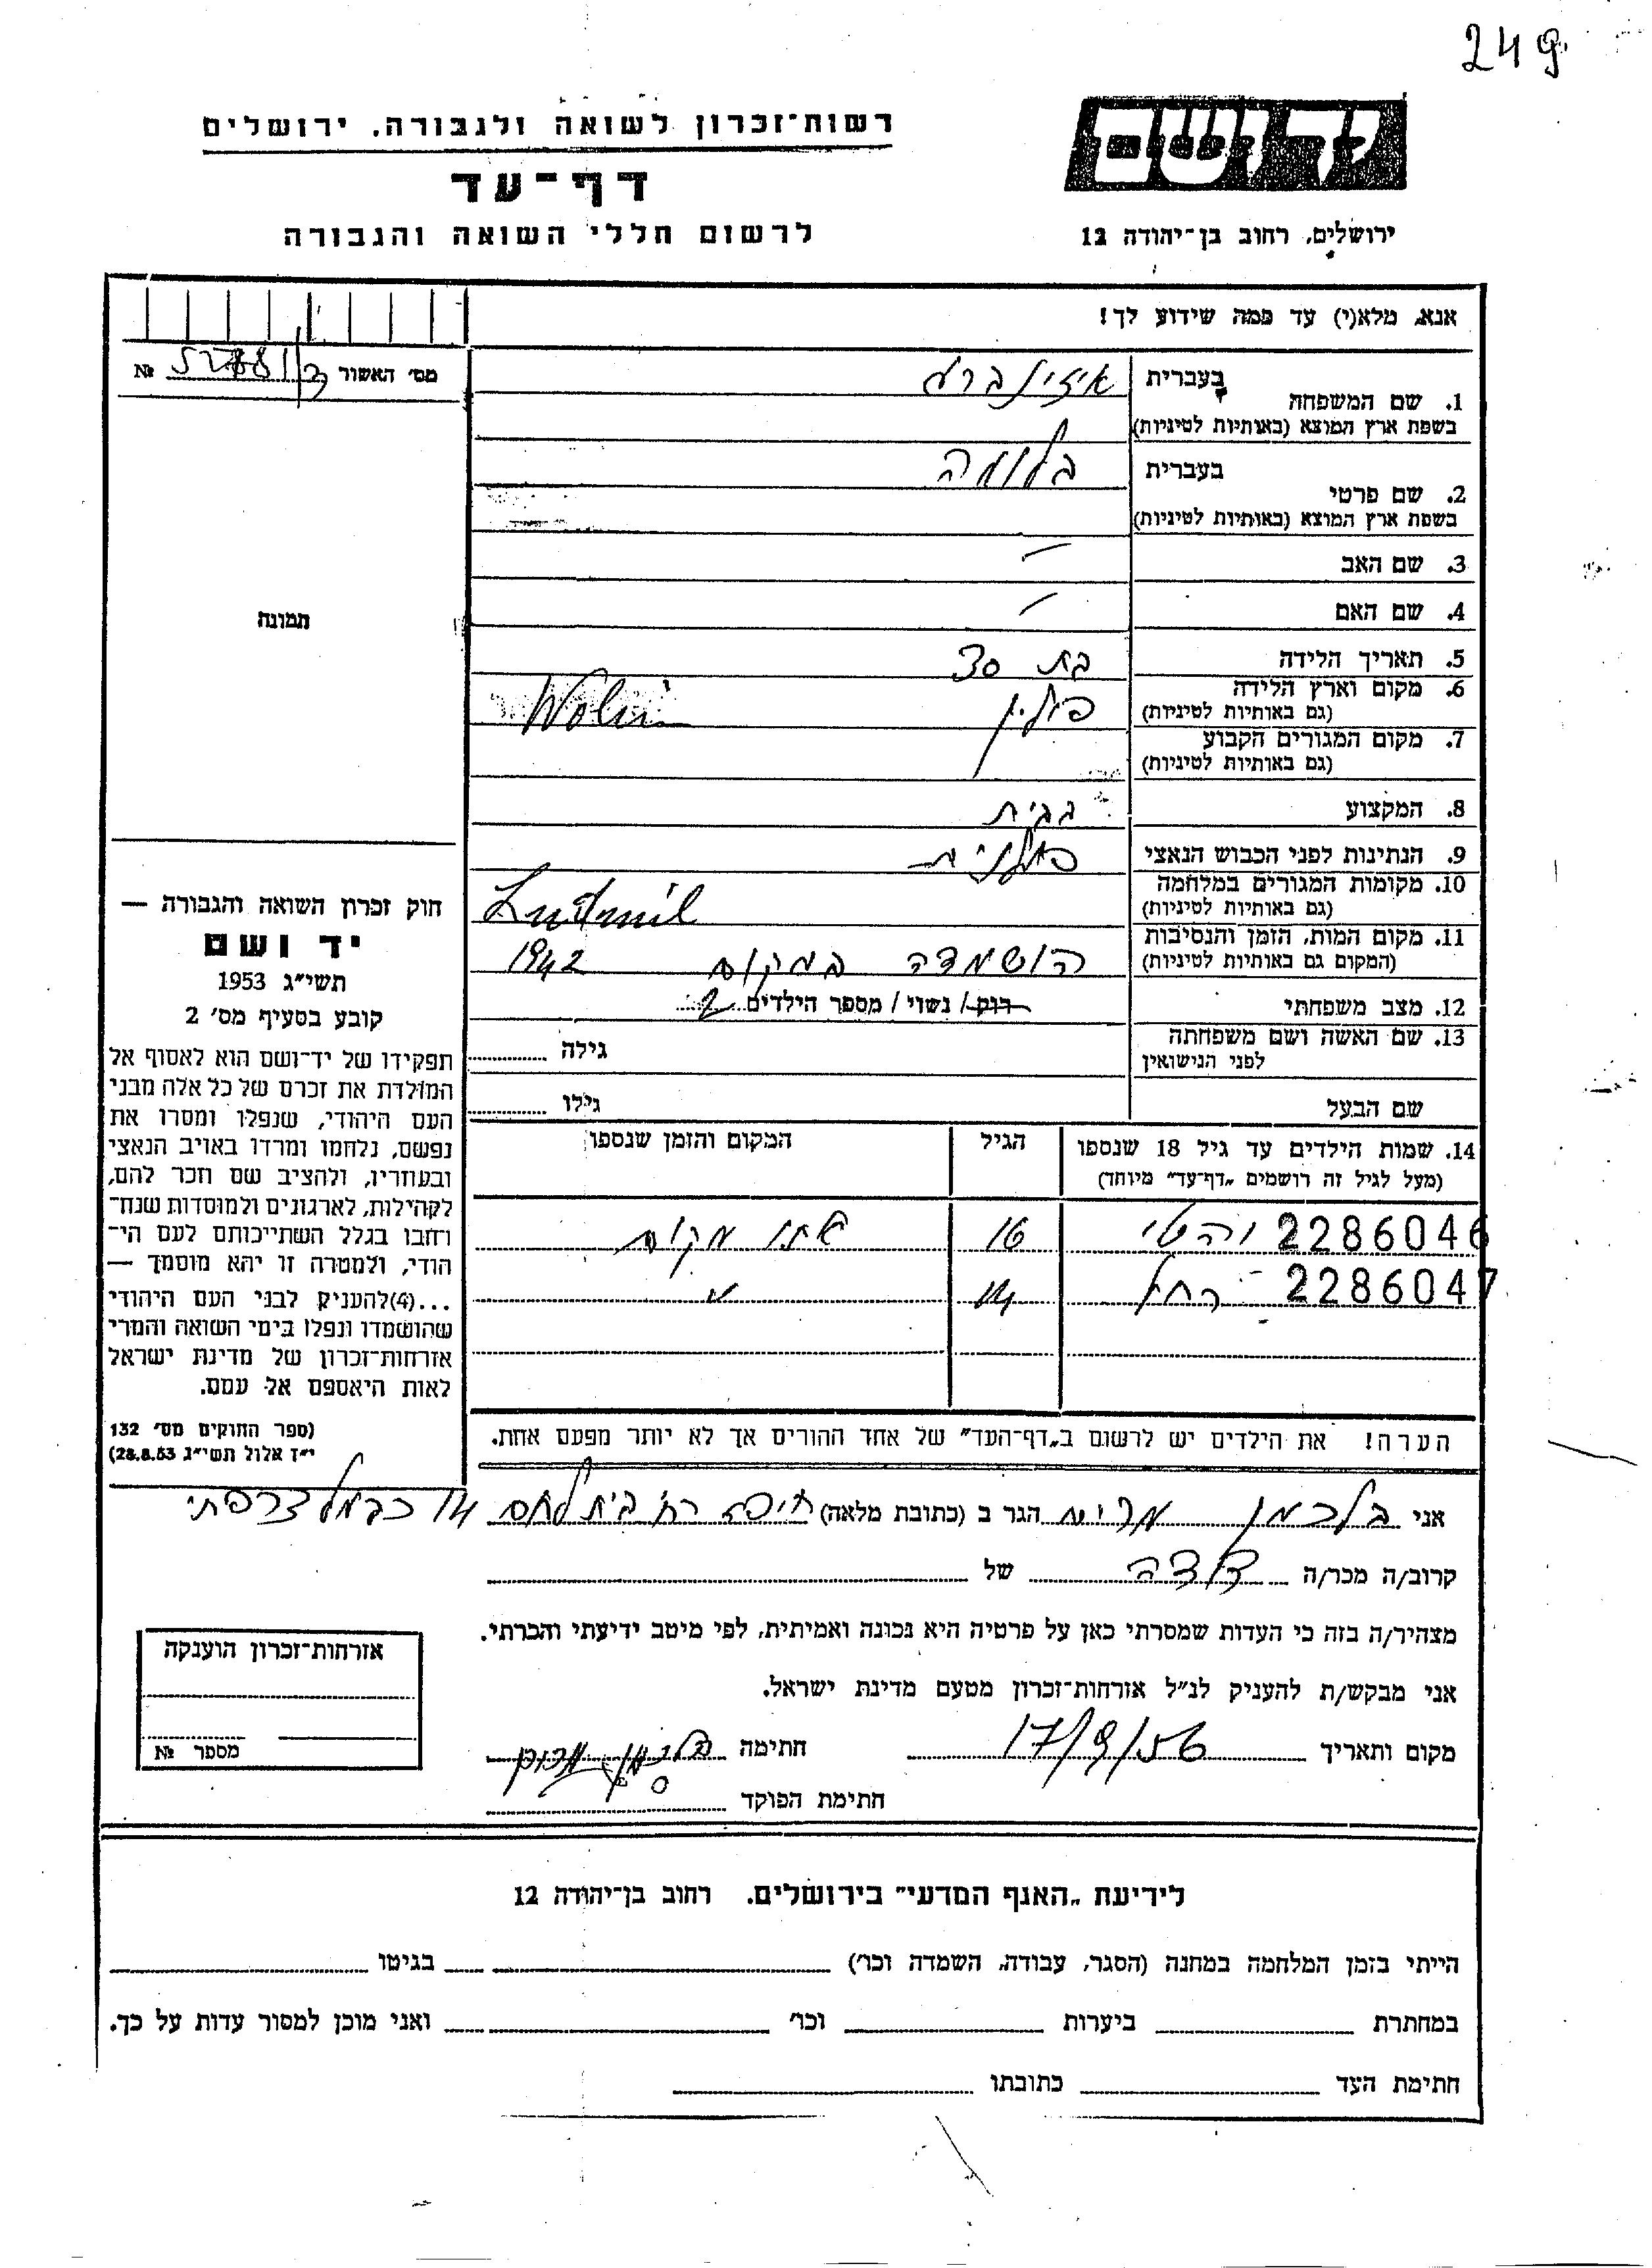 249
יד ושם
רשות־זכרון לשואה ולגבורה, ירושלים
דף־עד
לרשום חללי השואה והגבורה
ירושלים, רחוב בן־יהודה 12
אנא, מלא(י) עד כמה שידוע לך!
מס׳ האשור №
1. שם המשפחה בעברית
בשפת ארץ המוצא (באותיות לטיניות)
2. שם פרטי בעברית בלומה
בשפת ארץ המוצא (באותיות לטיניות)
3. שם האב —
4. שם האם —
תמונה
5. תאריך הלידה בת 30
6. מקום וארץ הלידה פולין Wolin
(גם באותיות לטיניות)
7. מקום המגורים הקבוע
(גם באותיות לטיניות)
8. המקצוע
9. הנתינות לפני הכבוש הנאצי פולנית
10. מקומות המגורים במלחמה
(גם באותיות לטיניות)
11. מקום המות, הזמן והנסיבות הושמדה במקום 1942
(המקום גם באותיות לטיניות)
12. מצב משפחתי רווק / נשוי / מספר הילדים 2
13. שם האשה ושם משפחתה גילה
לפני הנישואין
שם הבעל גילו
14. שמות הילדים עד גיל 18 שנספו הגיל המקום והזמן שנספו
(מעל לגיל זה רושמים „דף־עד״ מיוחד)
2286046 16 אתו מקום
2286047 רחל 14 〃
הערה! את הילדים יש לרשום ב„דף־העד״ של אחד ההורים אך לא יותר מפעם אחת.
חוק זכרון השואה והגבורה —
יד ושם
תשי״ג 1953
קובע בסעיף מס׳ 2
תפקידו של יד־ושם הוא לאסוף אל
המולדת את זכרם של כל אלה מבני
העם היהודי, שנפלו ומסרו את
נפשם, נלחמו ומרדו באויב הנאצי
ובעוזריו, ולהציב שם וזכר להם,
לקהילות, לארגונים ולמוסדות שנח־
רובו בגלל השתייכותם לעם הי־
הודי, ולמטרה זו יהא מוסמך —
...(4)להעניק לבני העם היהודי
שהושמדו ונפלו בימי השואה והמרי
אזרחות־זכרון של מדינת ישראל
לאות היאספם אל עמם.
(ספר החוקים מס׳ 132
י״ז אלול תשי״ג 28.8.53)
אני הגר ב (כתובת מלאה) חיפה רח׳ בית לחם 14 כרמל צרפתי
קרוב/ה מכר/ה דודה של
מצהיר/ה בזה כי העדות שמסרתי כאן על פרטיה היא נכונה ואמיתית, לפי מיטב ידיעתי והכרתי.
אני מבקש/ת להעניק לנ״ל אזרחות־זכרון מטעם מדינת ישראל.
מקום ותאריך 17/9/56 חתימה
חתימת הפוקד
אזרחות־זכרון הוענקה
מספר №
לידיעת „האגף המדעי״ בירושלים. רחוב בן־יהודה 12
הייתי בזמן המלחמה במחנה (הסגר, עבודה, השמדה וכו׳) בגיטו
במחתרת ביערות וכו׳ ואני מוכן למסור עדות על כך.
חתימת העד כתובתו